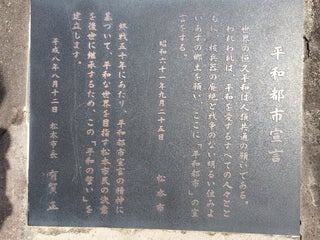 平和都市宣言
世界の恒久平和は人類共通の願いである。
われわれは、平和を愛するすべての人々とと
もに、核兵器の廃絶と戦争のない明るい住みよ
いあすの郷土を願い、ここに「平和都市」の宣
言をする。
昭和六十一年九月二十五日
松本市
終戦五十年にあたり、平和都市宣言の精神に
基づいて、平和な世界を目指す松本市民の決意
を後世に継承するため、この「平和の誓い」を
建立します。
平成八年八月十二日 松本市長 有賀 正